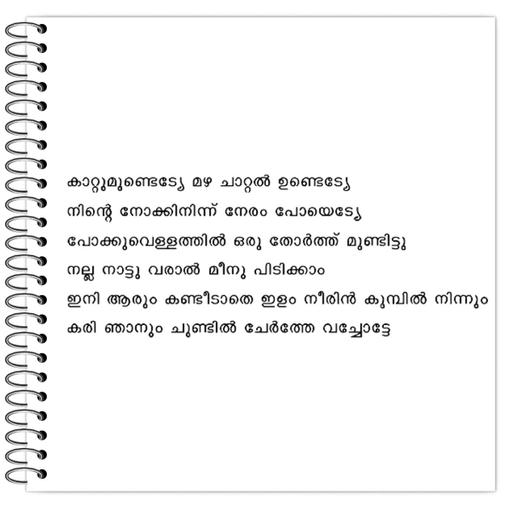 കാറ്റുമുണ്ടെടേ്യ മഴ ചാറ്റൽ ഉണ്ടെടേ്യ
നിന്റെ നോക്കിനിന്ന് നേരം പോയെടേ്യ
പോക്കുവെള്ളത്തിൽ ഒരു തോർത്ത് മുണ്ടിട്ടു
നല്ല നാട്ടു വരാൽ മീനു പിടിക്കാം
ഇനി ആരും കണ്ടീടാതെ ഇളം നീരിൻ കുമ്പിൽ നിന്നും
കരി ഞാനും ചുണ്ടിൽ ചേർത്തേ വച്ചോട്ടേ